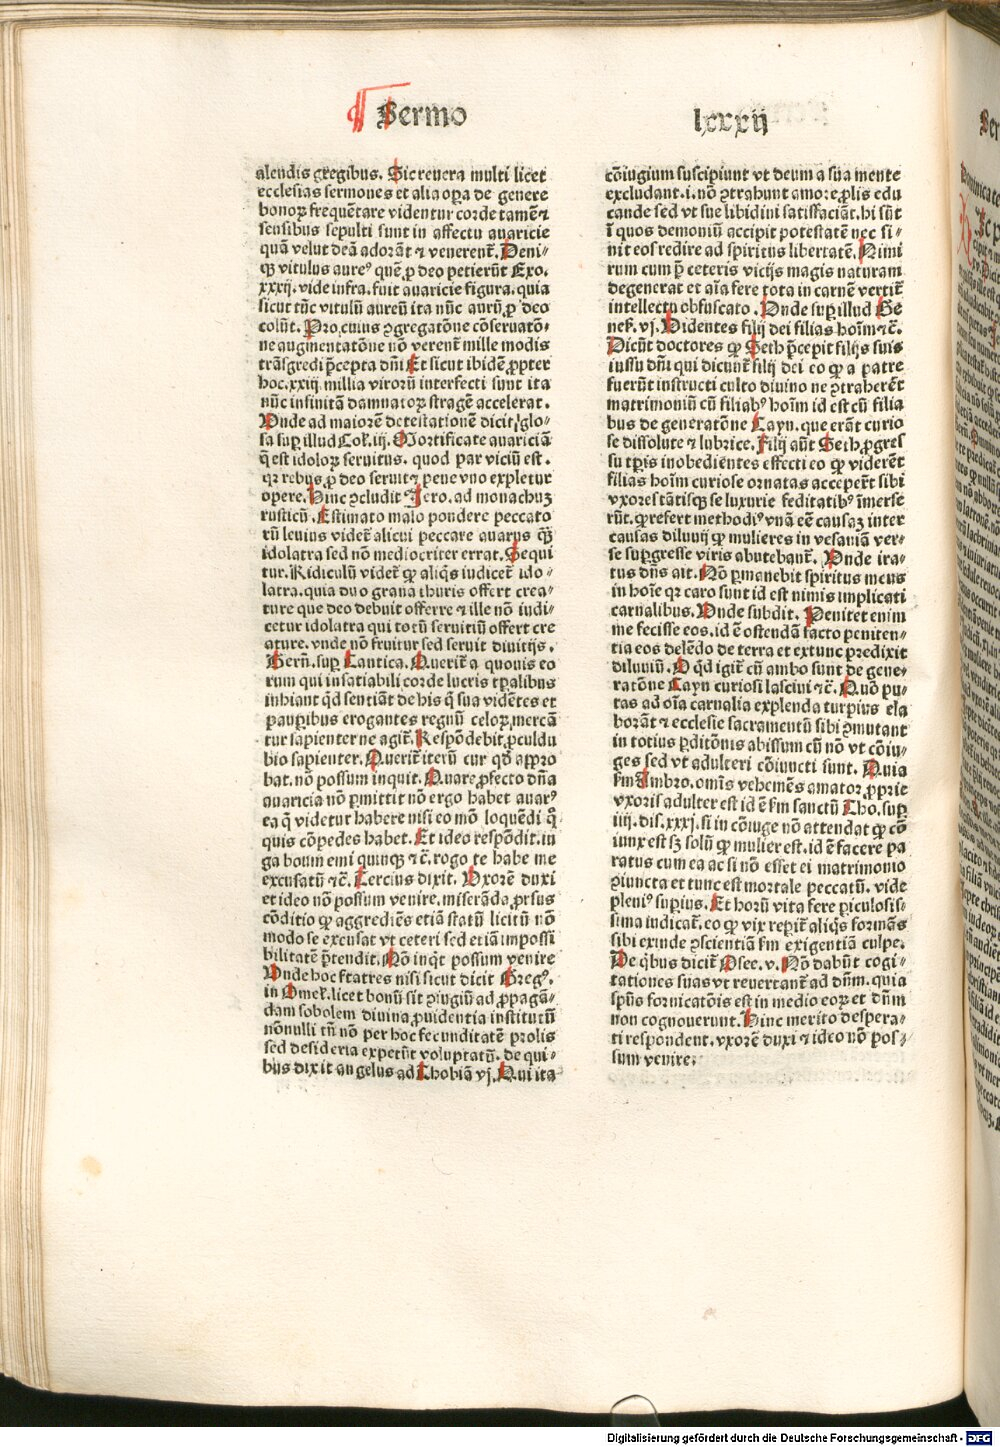 Sermo lxxxij
alendis gregibus. Sic reuera multi licet
ecclesias sermones et alia oꝑa de genere
bonoꝝ frequētare videntur corde tamē ⁊
sensibus sepulti sunt in affectu auaricie
quā velut deā adorāt ⁊ venerent̄. Deni⸗
qꝫ vitulus aureꝰ quē ꝓ deo petierūt Exo.
xxxij. vide infra. fuit auaricie figura. quia
sicut tūc vitulū aureū ita nūc aurū ꝓ deo
colūt. Pro cuius ꝯgregatōne cōseruatō⸗
ne augmentatōne nō verent̄ mille modis
trāsgredi p̄cepta dn̄i Et sicut ibidē ꝓpter
hoc. xxiij. millia virorū interfecti sunt ita
nūc infinitā damnatoꝝ stragē accelerat.
Unde ad maiorē detestationē dicit glo⸗
sa suꝑ illud Col. iij. Mortificate auariciā
q̄ est idoloꝝ seruitus. quod par viciū est.
qꝛ rebus ꝓ deo seruit ⁊ pene vno expletur
opere. Hinc ꝯcludit Jero. ad monachuꝫ
rusticū. Estimato malo pondere peccato
rū leuius videt̄ alicui peccare auarus qꝫ̄
idolatra sed nō mediocriter errat. Sequi
tur. Ridiculū videt̄ ꝙ aliq̄s iudicet̄ ido⸗
latra. quia duo grana thuris offert crea⸗
ture que deo debuit offerre ⁊ ille nō iudi⸗
cetur idolatra qui totū seruitiū offert cre
ature. vnde nō fruitur sed seruit diuitijs.
Bern̄. suꝑ Cantica. Querit̄ a quouis eo
rum qui insatiabili corde lucris tꝑalibus
inhiant qd̄ sentiāt de his q̄ sua vidētes et
pauꝑibus erogantes regnū celoꝝ mercā
tur sapienter ne agit̄. Respōdebit ꝓculdu
bio sapienter. Querit̄ iterū cur qd̄ appro
bat. nō possum inquit. Quare ꝓfecto dn̄a
auaricia nō ꝑmittit nō ergo habet auarꝰ
ea q̄ videtur habere nisi eo mō loquēdi q̊
quis cōpedes habet. Et ideo respōdit. iu
ga boum emi quinqꝫ ⁊ c̄. rogo te habe me
excusatū ⁊ c̄. Tercius dixit. Uxorē duxi
et ideo nō possum venire. miserāda ꝓrsus
cōditio ꝙ aggrediēs etiā statū licitū nō
modo se excusat vt ceteri sed etiā impossi
bilitatē p̄tendit. Nō inq̄t possum venire
Unde hoc fratres nisi sicut dicit Gregꝰ.
in Omel̄. licet bonū sit ꝯiugiū ad ꝓpagā⸗
dam sobolem diuina ꝓuidentia institutū
nōnulli tn̄ nō per hoc fecunditatē prolis
sed desideria expetūt voluptatū. de qui⸗
bus dixit angelus ad Thobiā vj. Qui ita
cōiugium suscipiunt vt deum a sua mente
excludant. i. nō ꝯtrahunt amore ꝓlis edu
cande sed vt sue libidini satisfaciāt. hi sūt
ī quos demoniū accipit potestatē nec si⸗
nit eos redire ad spiritus libertatē. Nimi
rum cum p̄ ceteris vicijs magis naturam
degenerat et aīa fere tota in carnē vertit̄
intellectu obfuscato. Unde suꝑ illud Ge
nes̄. vj. Uidentes filij dei filias hoīm ⁊ c̄.
Dicūt doctores ꝙ Seth p̄cepit filijs suis
iussu dn̄i qui dicunt̄ filij dei eo ꝙ a patre
fuerūt instructi culto diuino ne ꝯtraherēt
matrimoniū cū filiabꝰ hoīm id est cū filia
bus de generatōne Cayn. que erāt curio
se dissolute ⁊ lubrice. Filij aūt Seth ꝓgres
su tꝑis inobedientes effecti eo ꝙ viderēt
filias hoīm curiose ornatas acceperūt sibi
vxores tātisqꝫ se luxurie feditatibꝰ īmerse
rūt. ꝙ refert methodiꝰ vnā eē causaꝫ inter
causas diluuij ꝙ mulieres in vesaniā ver⸗
se suꝑgresse viris abutebant̄. Unde ira⸗
tus dn̄s ait. Nō ꝑmanebit spiritus meus
in hoīe qꝛ caro sunt id est nimis implicati
carnalibus. Unde subdit. Penitet enim
me fecisse eos. id ē ostendā facto peniten⸗
tia eos delēdo de terra et extunc predixit
diluuiū. O qd̄ igit̄ cū ambo sunt de gene⸗
ratōne Cayn curiosi lasciui ⁊ c̄. Quō pu⸗
tas ad oīa carnalia explenda turpius ela
borāt ⁊ ecclesie sacramentū sibi ꝯmutant
in totius ꝑditōnis abissum cū nō vt cōiu⸗
ges sed vt adulteri cōiuncti sunt. Quia
km̄ Ambro. omīs vehemēs amator ꝓprie
vxoris adulter est id ē km̄ sanctū Tho. suꝑ
iiij. dis. xxxj. si in cōiuge nō attendat ꝙ cō
iunx est sꝫ solū ꝙ mulier est. id ē facere pa
ratus cum ea ac si nō esset ei matrimonio
ꝯiuncta et tunc est mortale peccatū. vide
pleniꝰ suꝑius. Et horū vita fere ꝑiculosis⸗
sima iudicat̄. eo ꝙ vix reꝑit̄ aliq̄s formās
sibi exinde ꝯscientiā km̄ exigentiā culpe.
De q̄bus dicit̄ Osee. v. Nō dabūt cogi⸗
tationes suas vt reuertant̄ ad dn̄m. quia
sp̄us fornicatōis est in medio eoꝝ et dn̄m
non cognouerunt. Hinc merito despera⸗
ti respondent. vxorē duxi ⁊ ideo nō pos⸗
sum venire.
Digitalisierung gefördert durch die Deutsche Forschungsgemeinschaft - DFG